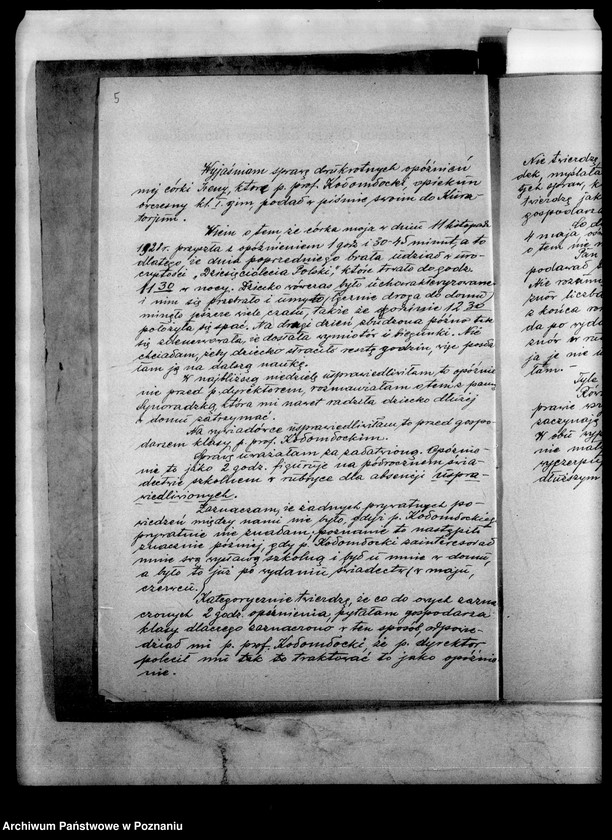 5
Wyjaśniam sprawę dwukrotnych opóźnień
mej córki Ireny, które p. prof. Kołomłocki, opiekun
ówczesny kl. I. gim podał w piśmie swoim do Kura-
torjum.
Wiem o tem, że córka moja w dniu 11 listopada
192 r. przyszła z opóźnieniem 1 godz i 30-45 minut, a to
dlatego, że dnia poprzedniego brała udział w uro-
czystości "Dziesięciolecia Polski", które trwało do godz.
11 30 w nocy. Dziecko wówczas było ucharakteryzowane
i nim się przebrało i umyło (łącznie droga do domu)
minęło jeszcze wiele czasu, także że o godzinie 12 30
położyła się spać. Na drugi dzień zbudzona późno tak
się zdenerwowała, że dostała wymiotów i biegunki. Nie
chciałam, żeby dziecko straciło resztę godzin, więc posła-
łam ją na dalszą naukę.
W najbliższą niedzielę usprawiedliwiłam to opóźnie-
nie przed p. dyrektorem, rozmawiałam o tem z panią
która mi nawet radziła dziecko dłużej
w domu zatrzymać.
Na wywiadówce usprawiedliwiłam to przed gospo-
darzem klasy, p. prof. Kołomłockim.
Sprawę uważałam za załatwioną. Opóźnie-
nie to jako 2 godz. figuruje na półrocznem świa-
dectwie szkolnem w rubryce dla absencji uspra-
wiedliwionych.
Zaznaczam, że żadnych prywatnych po-
wiedzeń między nami nie było, gdyż p. Kołomłockiego
prywatnie nie znałam, poznanie to nastąpiło
znacznie później, gdy p. Kołomłocki zainteresował
mnie swą wystawą szkolną i był u mnie w domu,
a było to już po wydaniu świadectw (w maju,
czerwcu)
Kategorycznie twierdzę, że co do owych zazna-
czonych 2 godz. opóźnienia, pytałam gospodarza
klasy dlaczego zaznaczono w ten sposób, odpowie-
dział mi p. prof. Kołomłocki, że p. dyrektor
polecił mu tak to traktować to jako opóźnie-
nie.
Nie twierdzę,
dek, myślała
tych spraw, k
twierdzę jak
gospodarz
Co do
4 maja,
o tem nie
Pan
podawał
Nie rozum
znów liczba
z końca ro
da po wyda
znów w ru
ja je nie u
łam.-
Tyle
prawie
zaczynają
W obu wyp
nie mał
wyczerpu
dłuższym
Archiwum Państwowe w Poznaniu